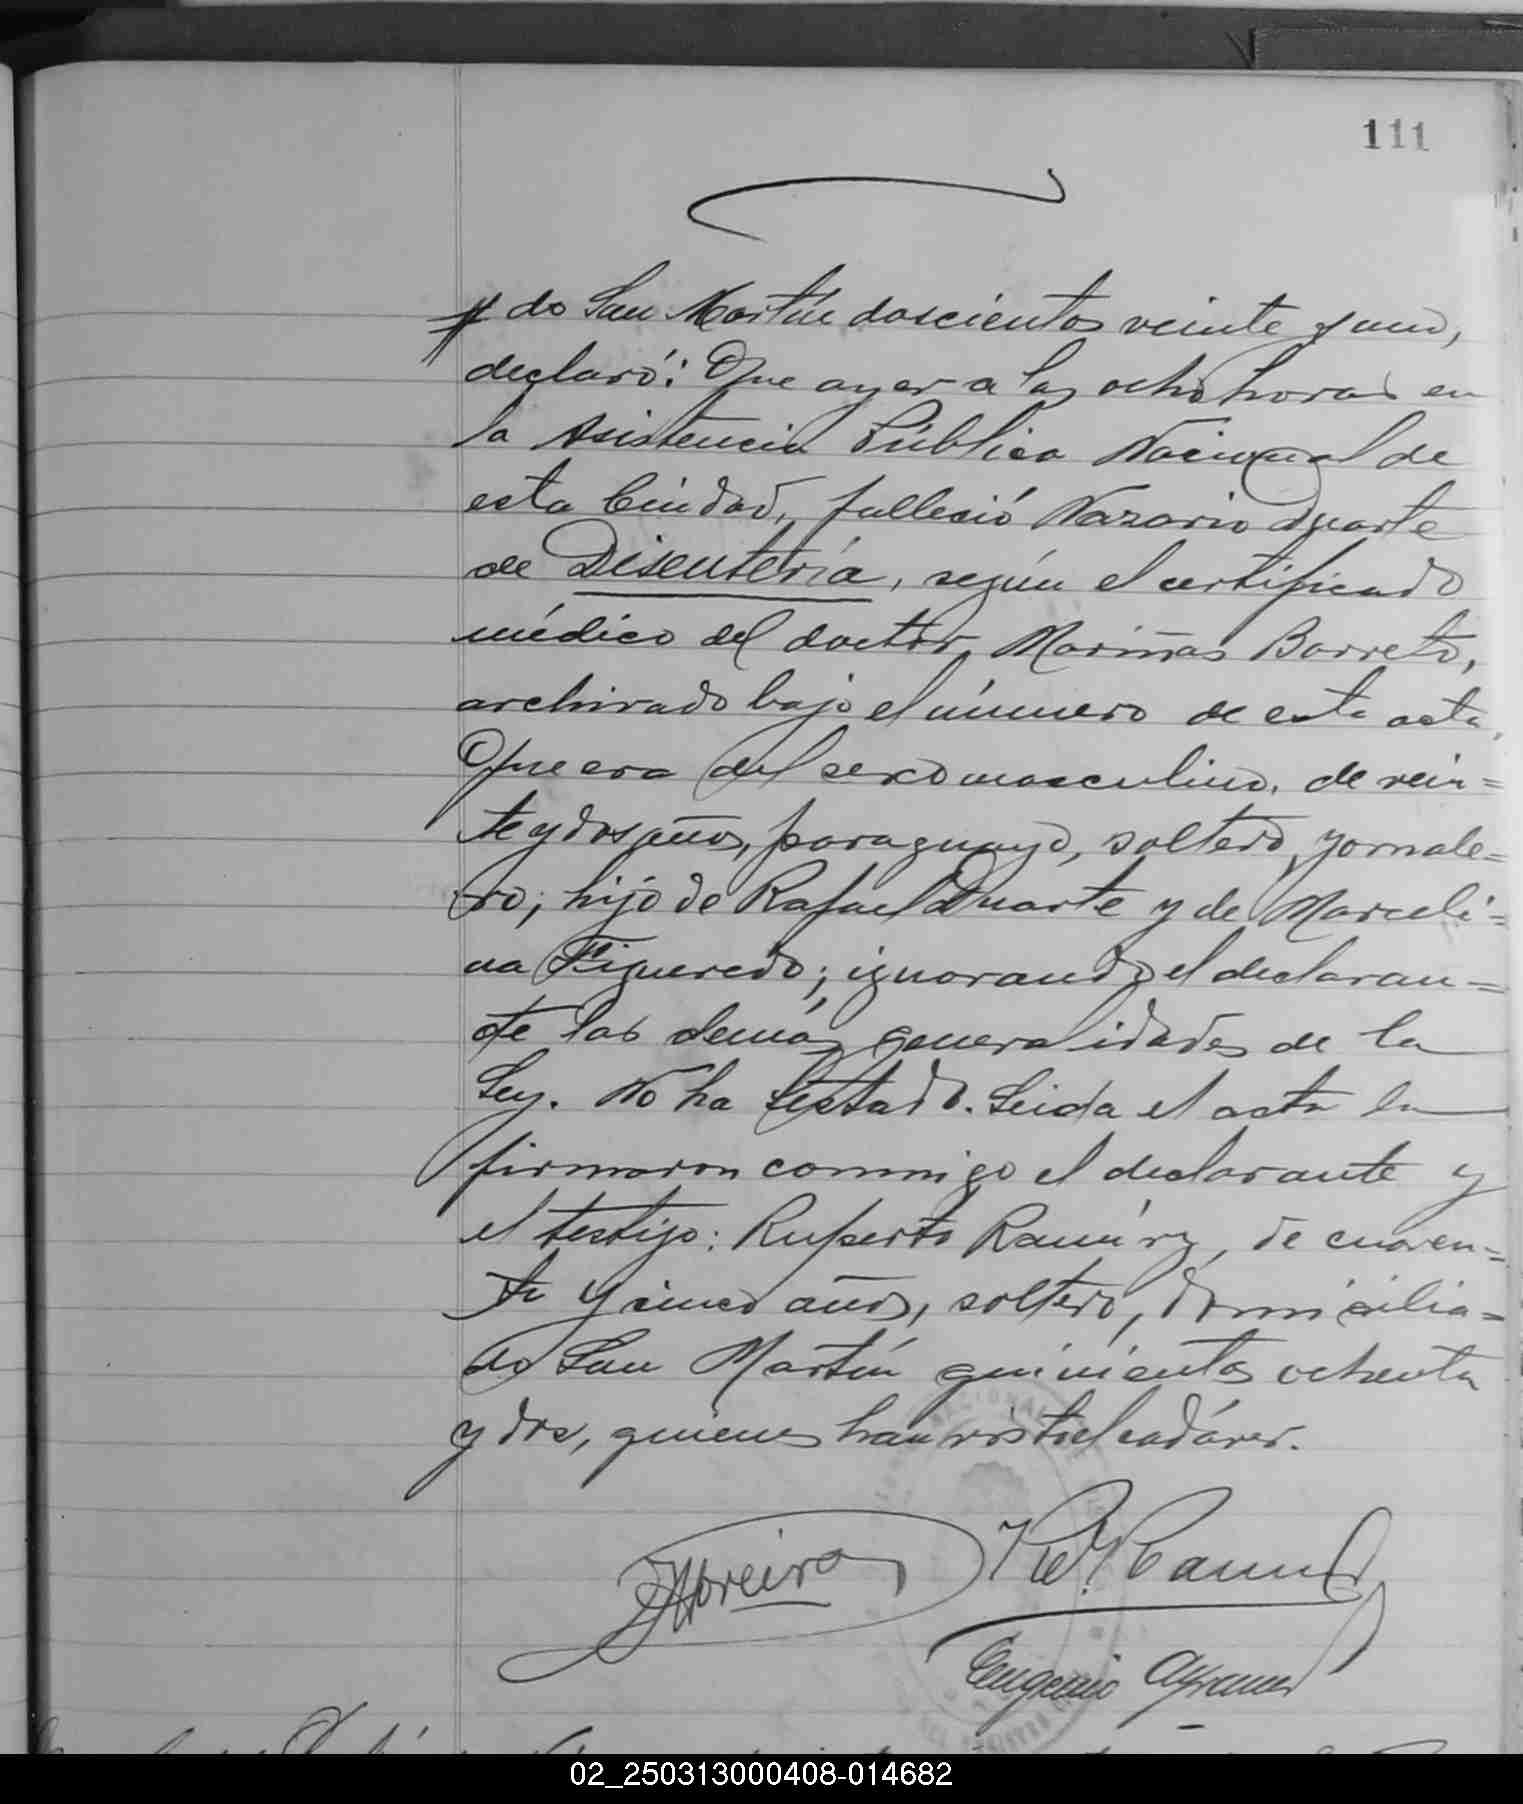 111
do San Martín doscientos veinte y uno,
declaró: Que ayer a las ocho horas en
la Asistencia Pública Nacional de
esta Ciudad, falleció Nazario Duarte
de Disentería, según el certificado
médico del doctor Mariñas Barreto,
archivado bajo el número de esta acta.
Que era del sexo masculino, de vein=
te y dos años, paraguayo, soltero, jornale=
ro; hijo de Rafael Duarte y de Marceli=
na Figueredo; ignorando el declaran=
te las demás generalidades de la
Ley. No ha testado. Leida el acta la
firmaron conmigo el declarante y
el testigo: Ruperto Ramírez, de cuaren=
ta y cinco años, soltero, domicilia=
do San Martín quinientos ochenta
y dos, quienes han visto el cadáver.
Eugenio
02_250313000408-014682